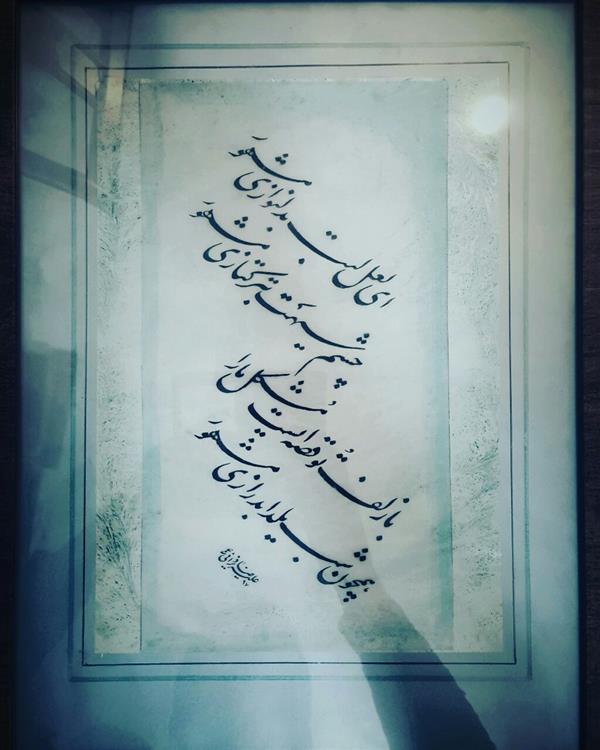 ای لعل لبت بدلنوازی مشهور
چشم سیهت بترکتازی مشهور
با زلف تو قصه ایست مشکل ما را
همچون شب یلدا بدرازی مشهور